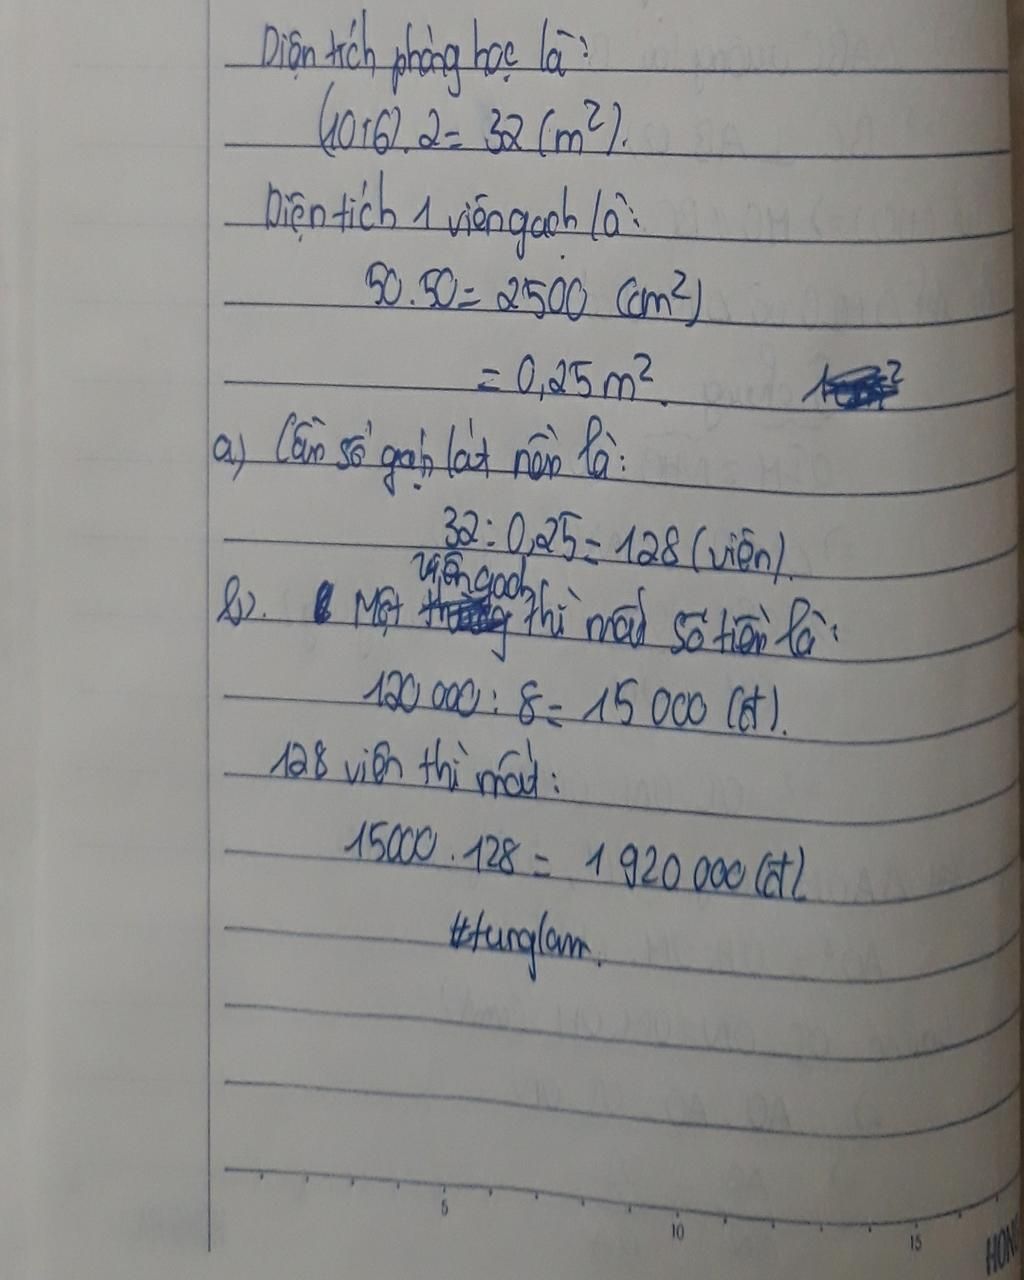 Diện tích phòng học là:
(10+6).2= 32 (m²).
Diện tích 1 viên gạch là:
50.50= 2500 (cm²)
= 0,25 m².
a) Cần số gạch lát nền là:
32: 0,25= 128 (viên).
viên gạch
b). Một thì mất số tiền là:
120 000: 8= 15 000 (đ).
128 viên thì mất:
15000.128 = 1 920 000 (đ)
#tunglam.
5
10
15
HONG